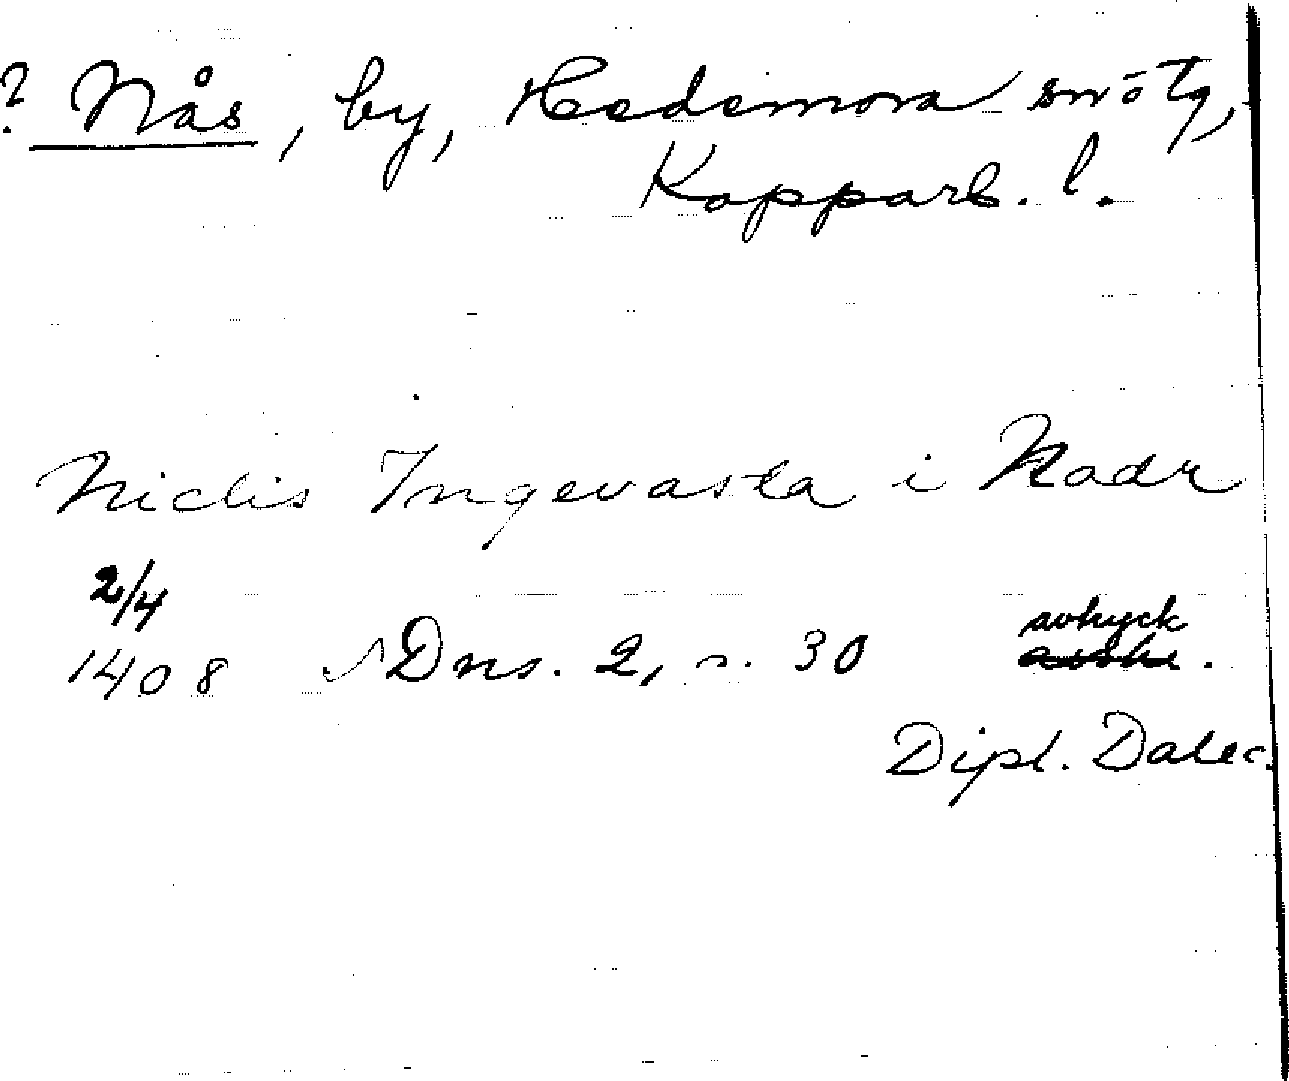 ? Nås, by, Hedemora sn o tg,
Kopparb. l.
Niclis Ingevasta i Nadr
2/4
1408 Dns. 2, s. 30 avtryck
Dipl. Dalec.